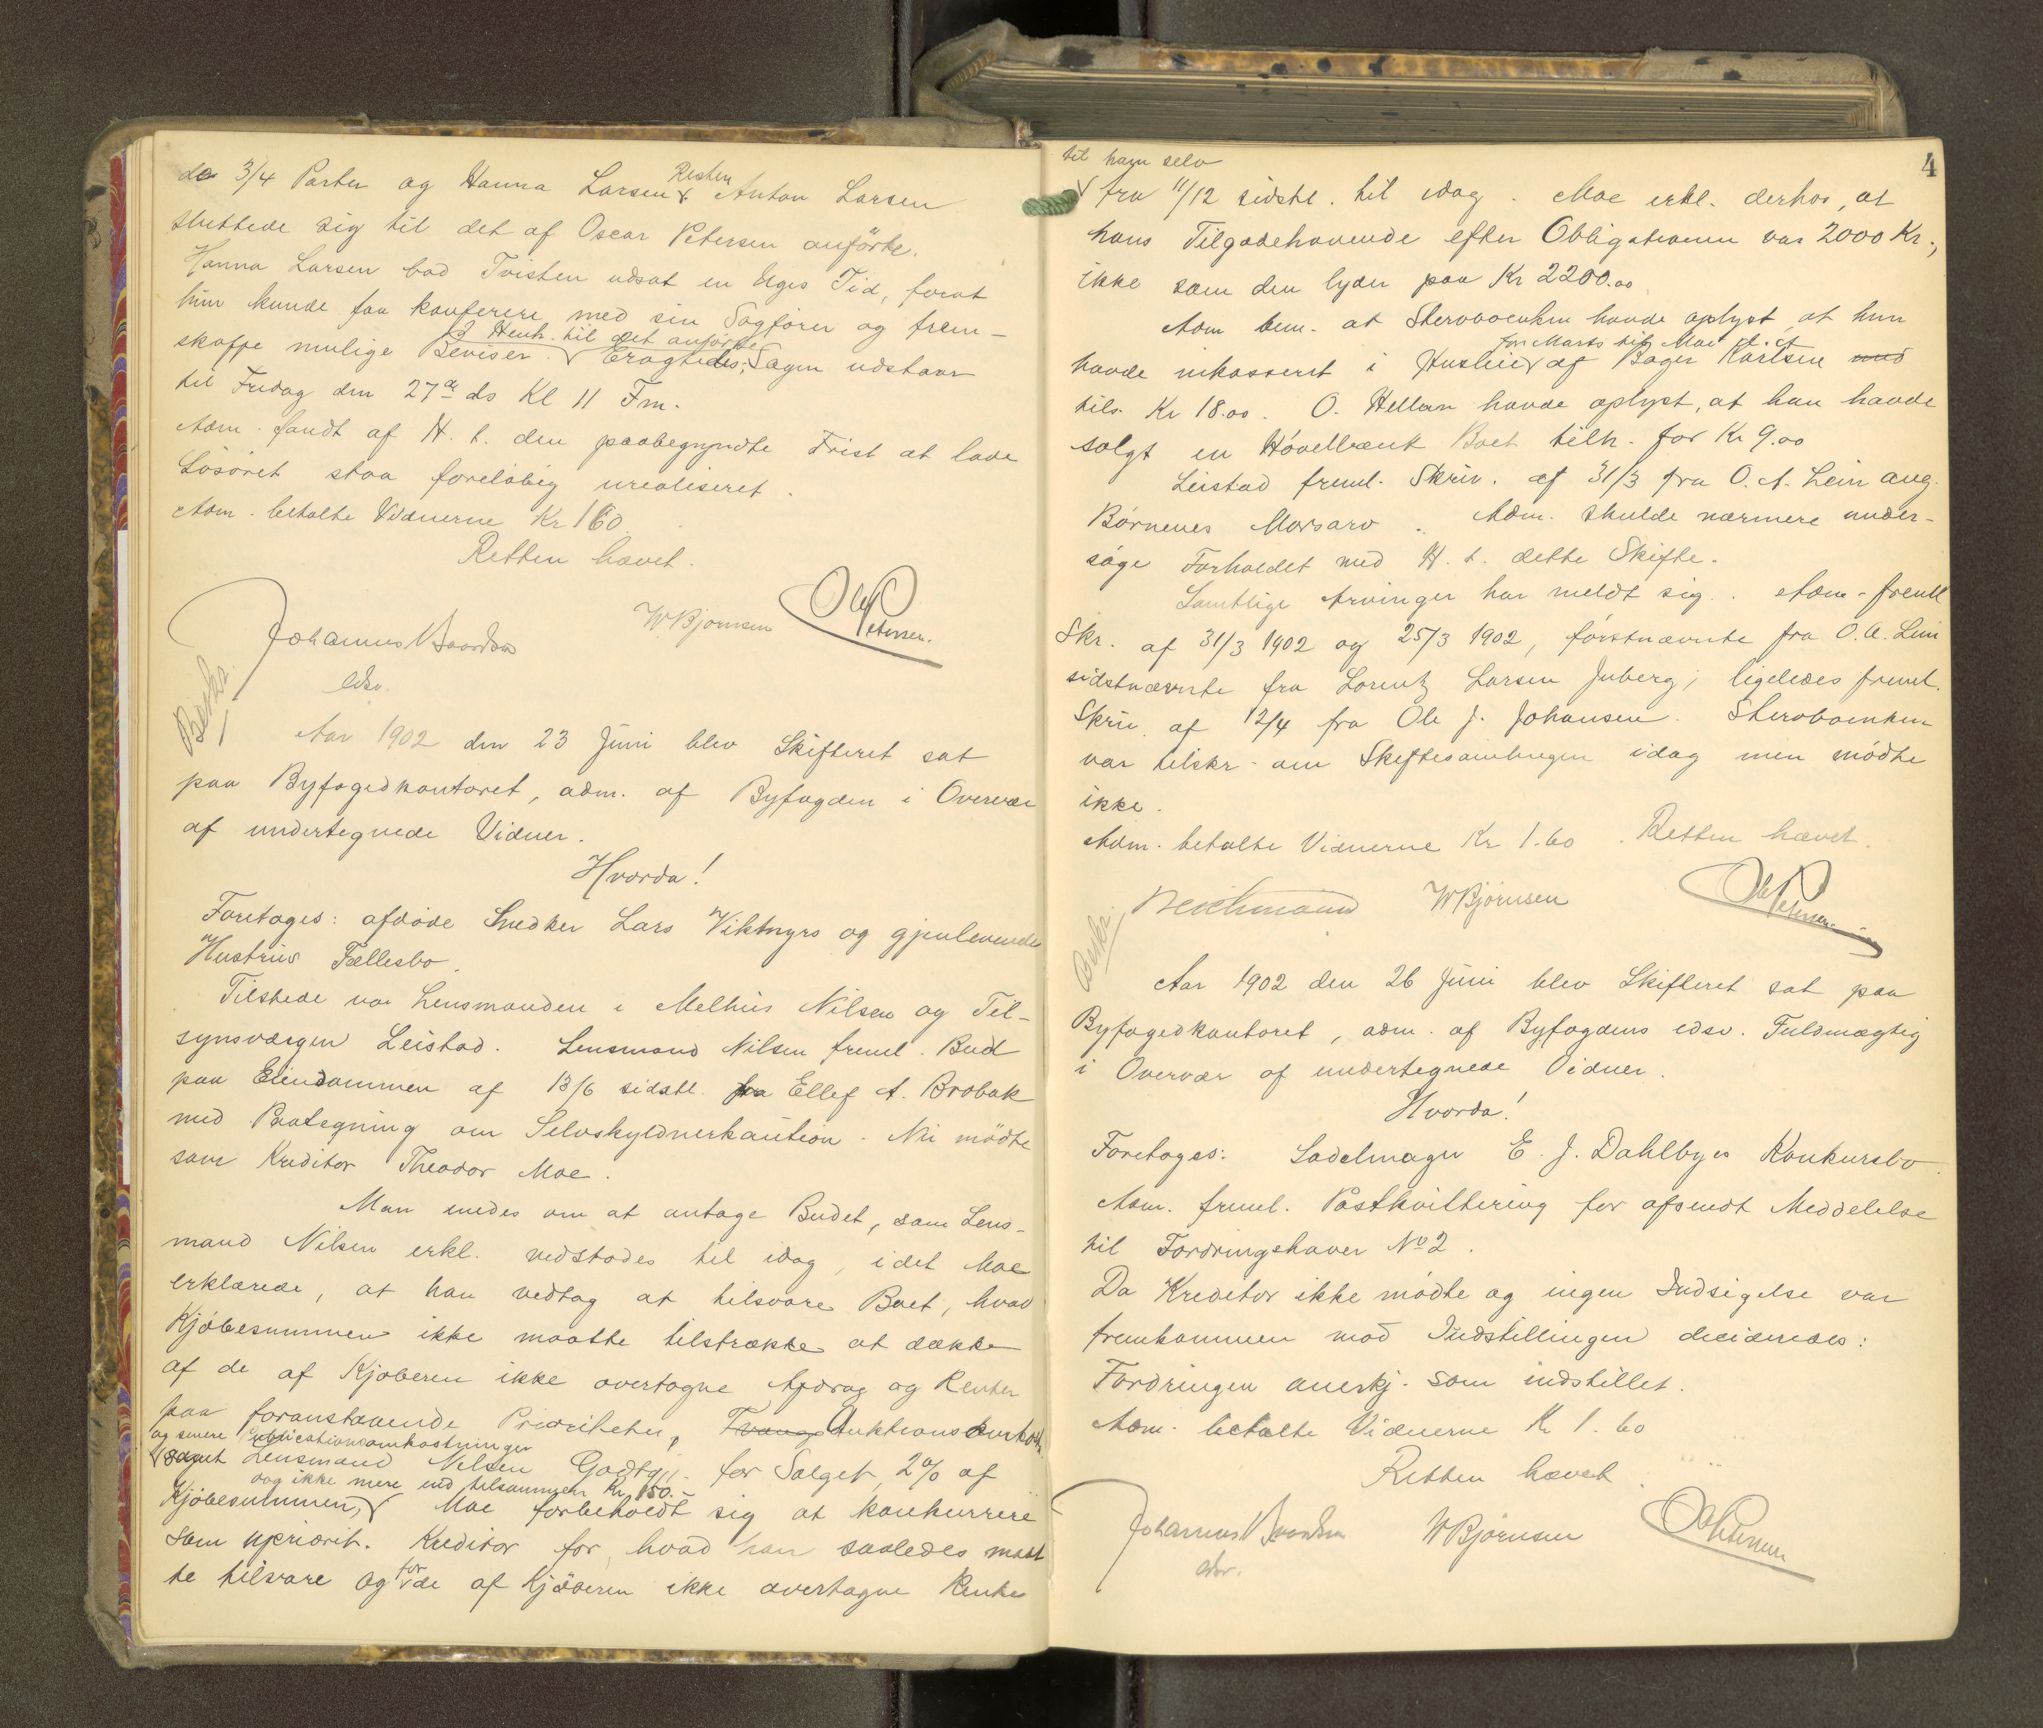 de 3/4 Parter og Hanna Larsen Resten Anton Larsen
sluttede sig til det af Oscar Petersen anförte.
Hanna Larsen bad Tvisten udsat en Uges Tid, forat
hun kunde faa konferere med sin Sagförer og frem-
skaffe mulige Beviser. I Henh. til det anförte Eragtedes: Sagen udstaar
til Fredag den 27de ds Kl 11 Fm.
Adm. fandt af H. t. den paabegyndte Frist at lade
Lösöret staa foreløbig urealiseret.
Adm. betalte Vidnerne Kr 1 60.
Retten hævet.
Johannes
WBjørnsen
Ole Petersen.
edsv.
Aar 1902 den 23 Juni blev Skifteret sat
paa Byfogedkontoret, adm. af Byfogden i Overvær
af undertegnede Vidner.
Hvorda!
Foretoges: afdøde Snedker Lars Viktnyrs og gjenlevende
Hustrus Fællesbo.
Tilstede var Lensmanden i Melhus Nilsen og Til-
synsværgen Leistad. Lensmand Nilsen freml. Bud
paa Eiendommen af 13/6 sidstl. fra Ellef A. Brobak
med Paategning om Selvskyldnerkaution. Nu mödte
som Kreditor Theodor Moe.
Man enedes om at antage Budet, som Lens-
mand Nilsen erkl. vedstodes til idag, idet Moe
erklærede, at han vedtog at tilsvare Boet, hvad
Kjöbesummen ikke maatte tilstrække at dække
af de af Kjøberen ikke overtagne Afdrag og Renter
paa foranstaaende Prioriteter, Tvangs Auktions
og senere Publicationsomkostninger
samt Lensmand Nilsen Godtgj. for Salget, 2% af
dog ikke mere end tilsammen Kr 150.-
Kjöbesummen, Moe forbeholdt sig at konkurrere
som upriorit. Kreditor for, hvad han saaledes maat
te tilsvare og for de af Kjöberen ikke overtagne Renter
4
til ham selv
fra 11/12 sidstl. til idag. Moe erkl. derhos, at
hans Tilgodehavende efter Obligationen var 2000 Kr.,
ikke som den lyder paa Kr 2200.00
Adm bem. at Sterboenken havde oplyst, at hun
havde inkasseret i Husleie for Marts til Mai af Bager Karlsen med
tils. Kr 18.00. O. Hellan havde oplyst, at han havde
solgt en Høvelbænk Boet tilh. for Kr 9.00
Leistad freml. Skriv. af 31/3 fra O. A. Lein ang.
Børnenes Morsarv. Adm. skulde nærmere under-
søge Forholdet med H. t. dette Skifte.
Samtlige Arvinger har meldt sig. Adm. freml
Skr. af 31/3 1902 og 25/3 1902, förstnævnte fra O. A. Lein
sidstnævnte fra Lorentz Larsen Juberg; ligeledes freml.
Skriv. af 12/4 fra Ole J. Johansen. Sterboenken
var tilskr. om Skiftesamlingen idag men mödte
ikke.
Adm. betalte Vidnerne Kr 1.60. Retten hævet.
WBjørnsen
Ole Petersen.
Aar 1902 den 26 Juni blev Skifteret sat paa
Byfogedkontoret, adm. af Byfogdens edsv. Fuldmægtig
i Overvær af undertegnede Vidner.
Hvorda!
Foretoges: Sadelmager E. J. Dahlbyes Konkursbo.
Adm. freml. Postkvittering for afsendt Meddelelse
til Fordringshaver No 2.
Da Kreditor ikke mödte og ingen Indsigelse var
fremkommen mod Indstillingen decideredes:
Fordringen anerkj. som indstillet.
Adm. betalte Vidnerne Kr 1.60
Retten hævet.
Johannes
WBjørnsen
Ole Petersen
edsv.